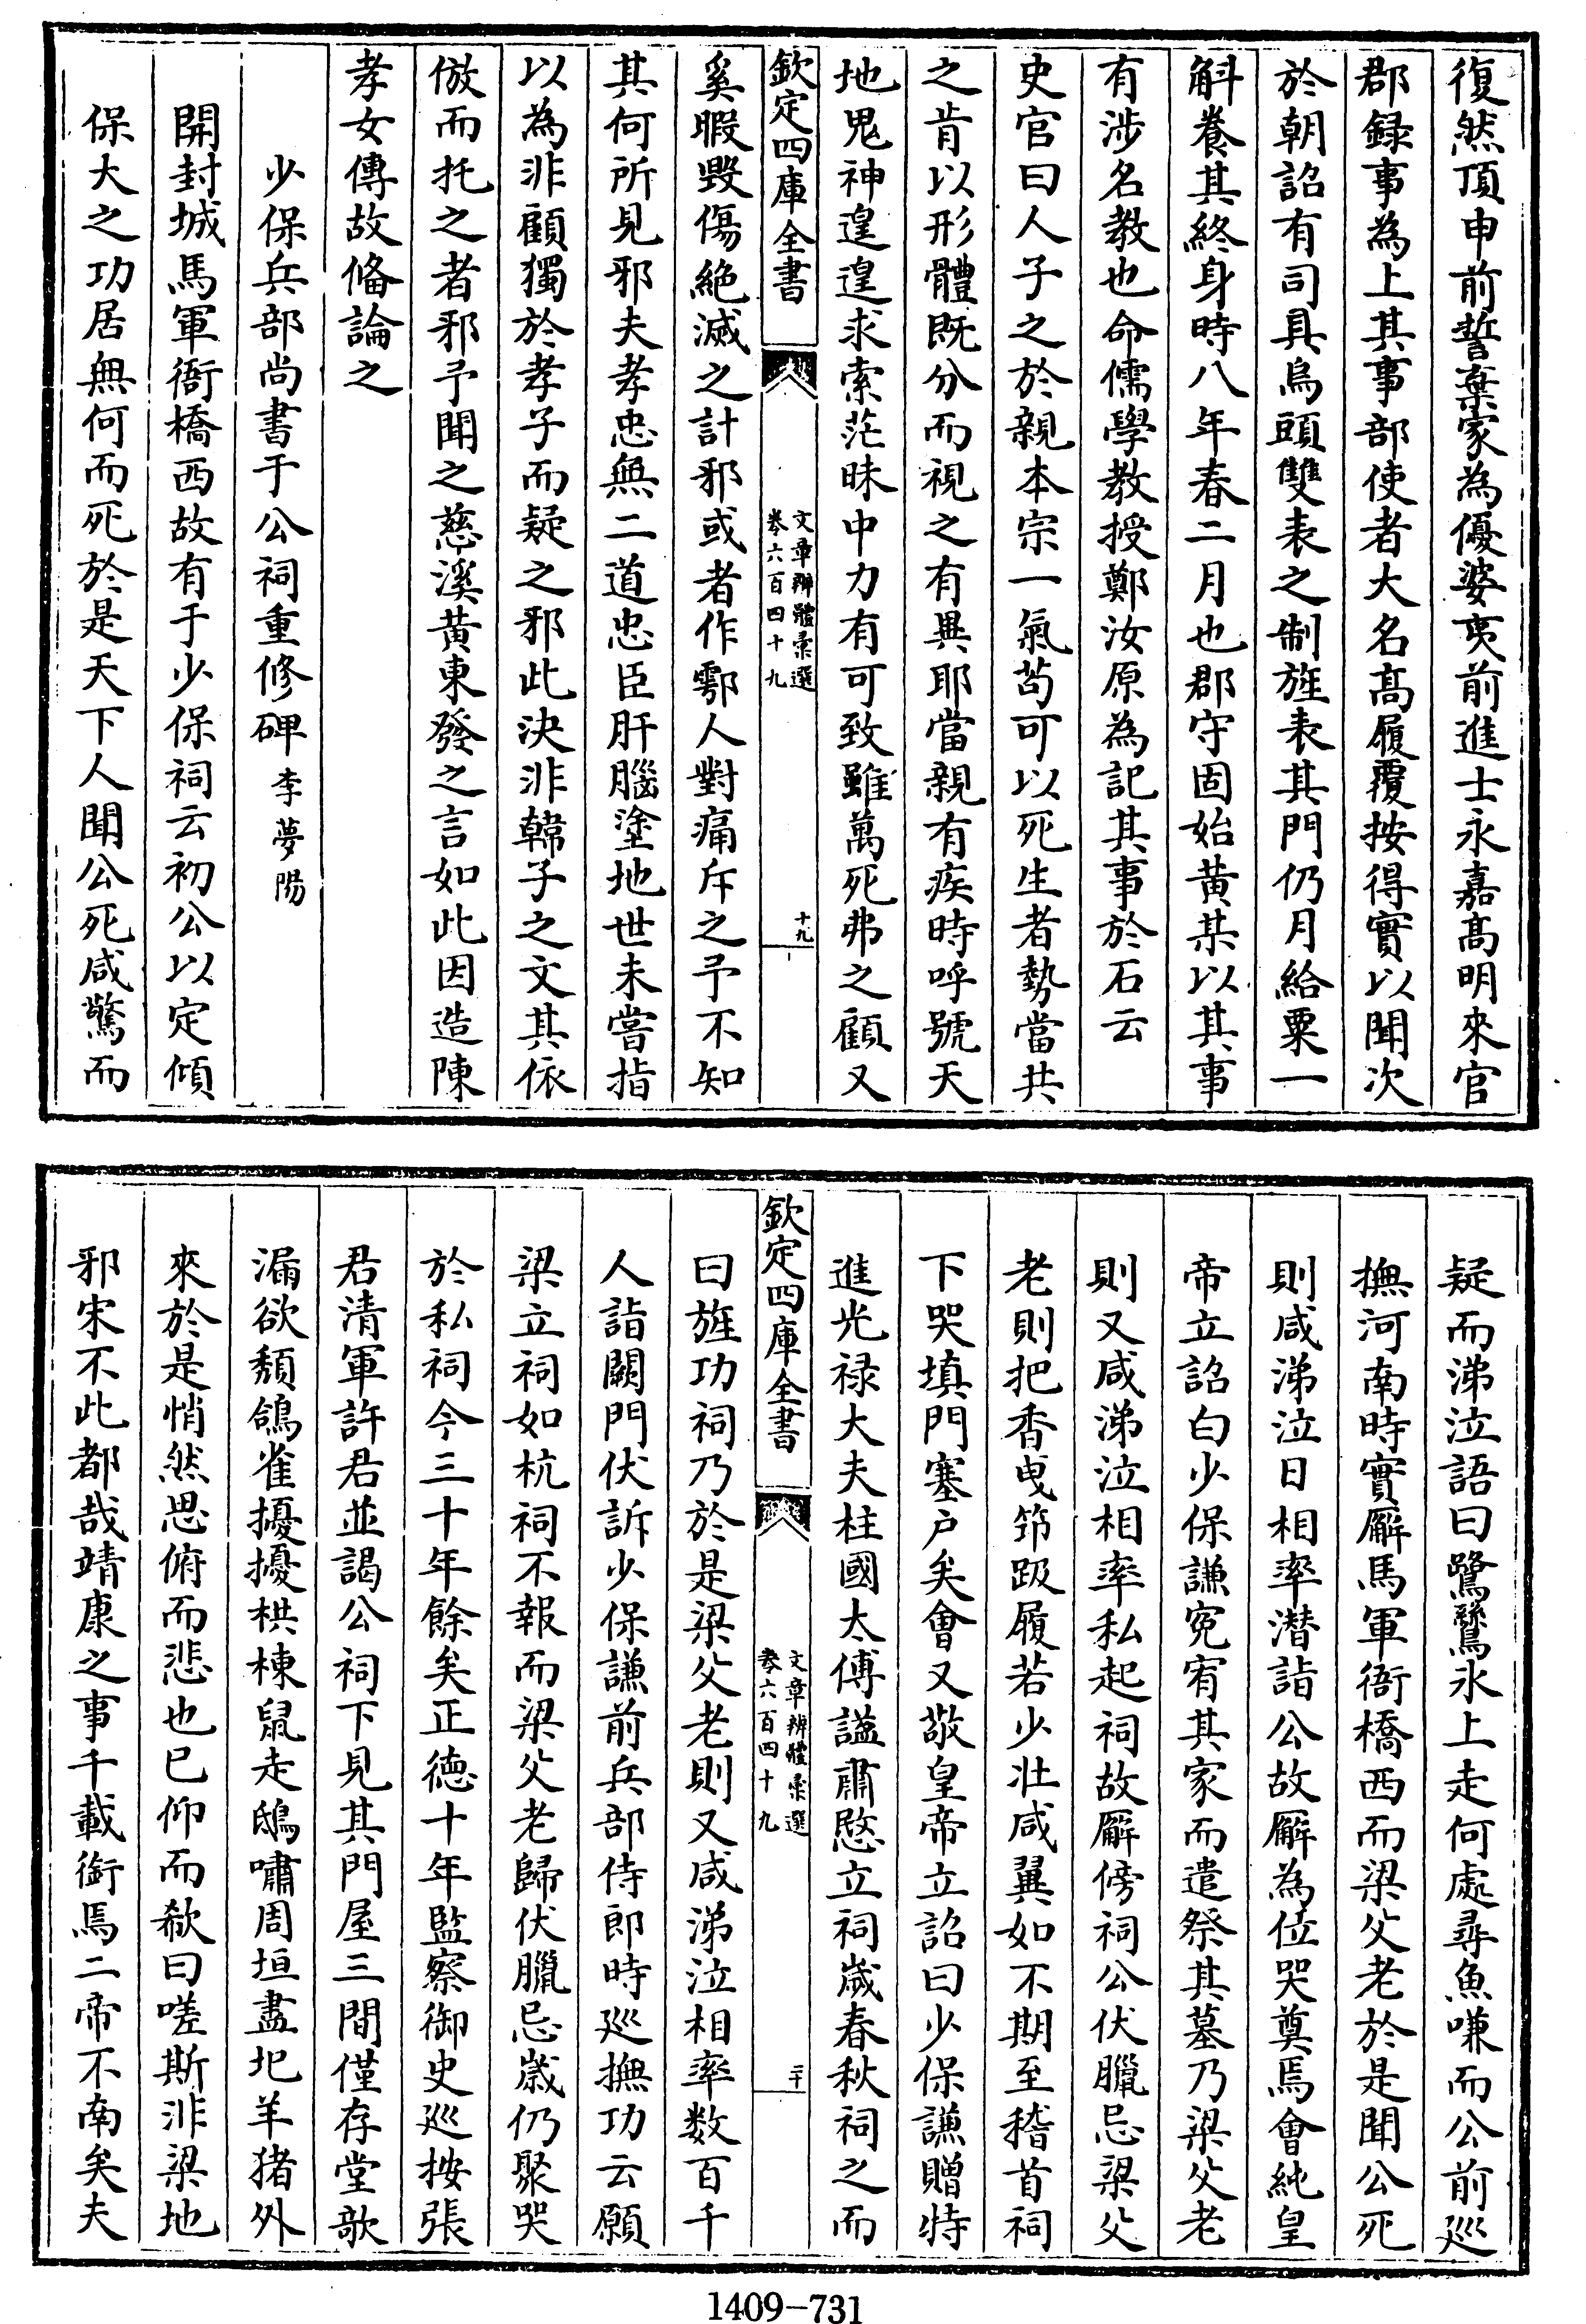 復然頂申前誓棄家為優婆夷前進士永嘉髙明來官
郡録事為上其事部使者大名髙履覆按得實以聞次
於朝詔有司具烏頭雙表之制旌表其門仍月給粟一
斛養其終身時八年春二月也郡守固始黄某以其事
有渉名教也命儒學教授鄭汝原為記其事於石云
史官曰人子之於親本宗一氣茍可以死生者勢當共
之肯以形體既分而視之有異耶當親有疾時呼號天
地鬼神遑遑求索茫昧中力有可致雖萬死弗之顧又
欽定四庫全書
文章辨體彙選
卷六百四十九
十九
奚暇毀傷絶滅之計邪或者作鄠人對痛斥之予不知
其何所見邪夫孝忠無二道忠臣肝腦塗地世未嘗指
以為非顧獨於孝子而疑之邪此決非韓子之文其依
倣而托之者邪予聞之慈溪黄東發之言如此因造陳
孝女傳故備論之
少保兵部尚書于公祠重修碑 李夢陽
開封城馬軍衙橋西故有于少保祠云初公以定傾
保大之功居無何而死於是天下人聞公死咸驚而
疑而涕泣語曰鷺鷥氷上走何處尋魚嗛而公前廵
撫河南時實廨馬軍衙橋西而梁父老於是聞公死
則咸涕泣日相率潛詣公故廨為位哭奠焉會純皇
帝立詔白少保謙寃宥其家而遣祭其墓乃梁父老
則又咸涕泣相率私起祠故廨傍祠公伏臘忌梁父
老則把香曵筇跋履若少壯咸翼如不期至稽首祠
下哭填門塞户矣會又敬皇帝立詔曰少保謙贈特
進光禄大夫柱國太傅諡肅愍立祠嵗春秋祠之而
欽定四庫全書
文章辨體彙選
卷六百四十九
二十
曰旌功祠乃於是梁父老則又咸涕泣相率数百千
人詣闕門伏訴少保謙前兵部侍郎時廵撫功云願
梁立祠如杭祠不報而梁父老歸伏臘忌嵗仍聚哭
於私祠今三十年餘矣正徳十年監察御史廵按張
君清軍許君並謁公祠下見其門屋三間僅存堂欹
漏欲頽鴿雀擾擾栱棟鼠走鴟嘯周垣盡圮羊猪外
來於是悄然思俯而悲也已仰而欷曰嗟斯非梁地
邪宋不此都哉靖康之事千載銜焉二帝不南矣夫
1409-731